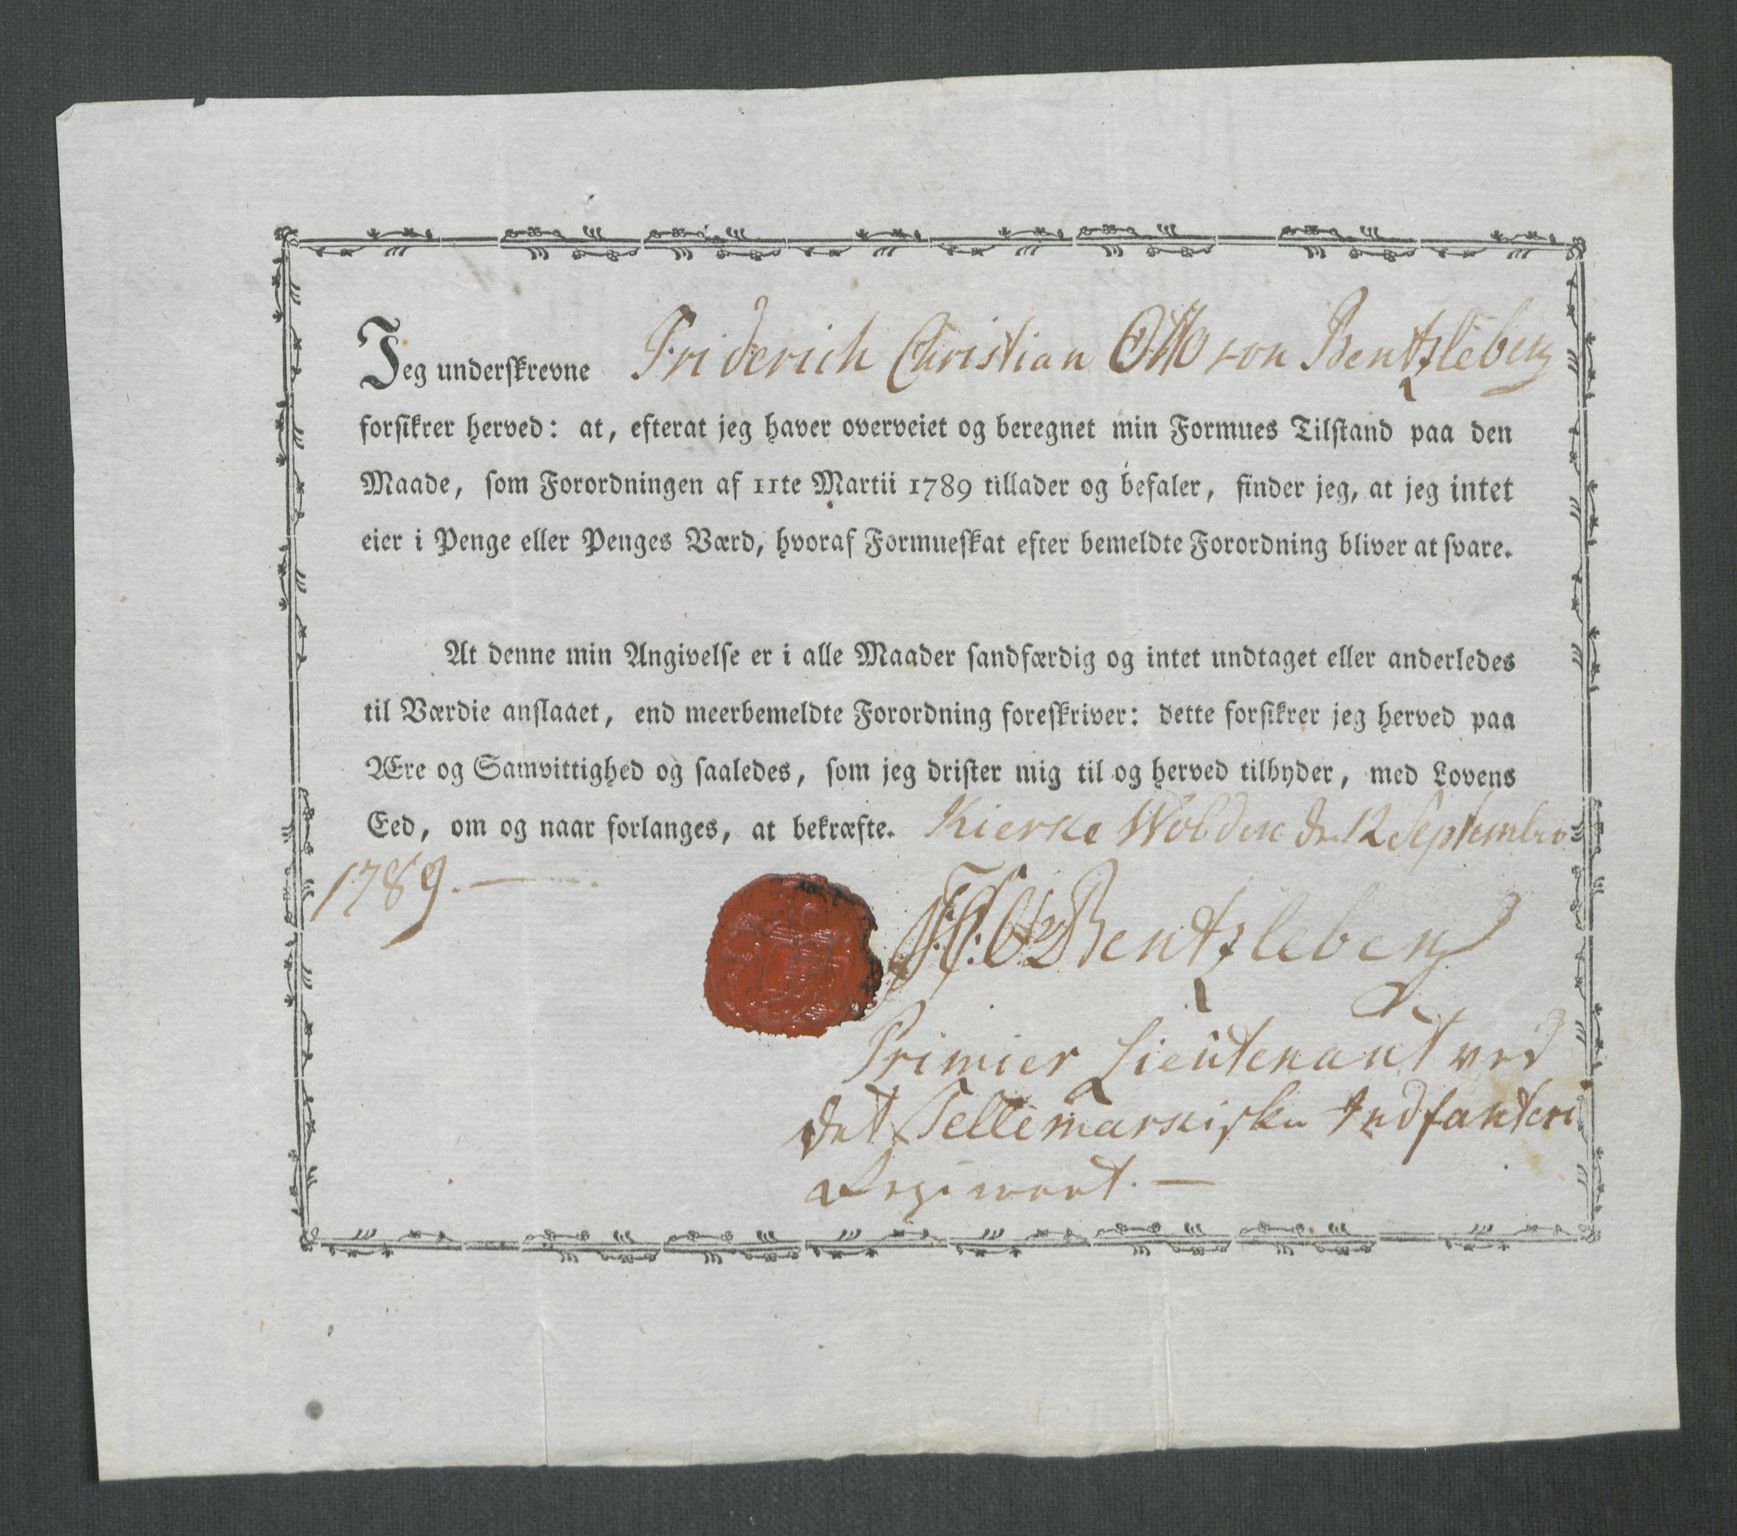 Jeg underskrevne Friderich Christian Otto von Bentzleben
forsikrer herved: at, efterat jeg haver overveiet og beregnet min Formues Tilstand paa den
Maade, som Forordningen af 11te Martii 1789 tillader og befaler, finder jeg, at jeg intet
eier i Penge eller Penges Værd, hvoraf Formueskat efter bemeldte Forordning bliver at svare.
At denne min Angivelse er i alle Maader sandfærdig og intet undtaget eller anderledes
til Værdie anslaaet, end meerbemeldte Forordning foreskriver: dette forsikrer jeg herved paa
Ære og Samvittighed og saaledes, som jeg drister mig til og herved tilbyder, med Lovens
Eed, om og naar forlanges, at bekræfte. Kierke Wolden d. 12 September
1789.
F: C: O: v Bentzleben
Primier Lieutenant ved
det Tellemarkiske Indfanteri
Regiment.